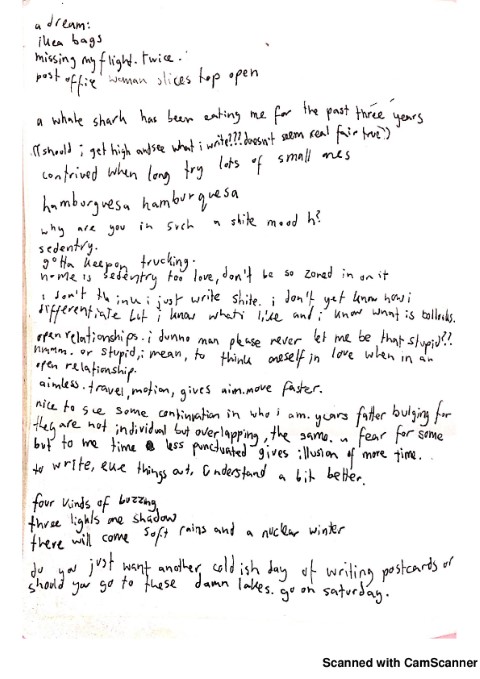 a dream:
ikea bags
missing my flight. twice.
post office woman slices top open
a whale shark has been eating me for the past three years
((should i get high and see what i write??? doesn't seem real fair true))
contrived when long try lots of small ones
hamburguesa hamburquesa
why are you in such a shite mood h?
sedentry.
gotta keep on trucking.
home is sedentry too love, don't be so zoned in on it
i don't think i just write shite. i don't yet know how i
differentiate but i know what i like and i know what is bollocks.
open relationships. i dunno man please never let me be that stupid??
hmmm. or stupid, i mean, to think oneself in love when in an
open relationship.
aimless. travel, motion, gives aim. move faster.
nice to see some continuation in who i am. years fatter bulging for
they are not individual but overlapping, the same. a fear for some
but to me time less punctuated gives illusion of more time.
to write, eke things out, understand a bit better.
four kinds of buzzing
three lights one shadow
there will come soft rains and a nuclear winter
do you just want another coldish day of writing postcards or
should you go to these damn lakes. go on saturday.
Scanned with CamScanner